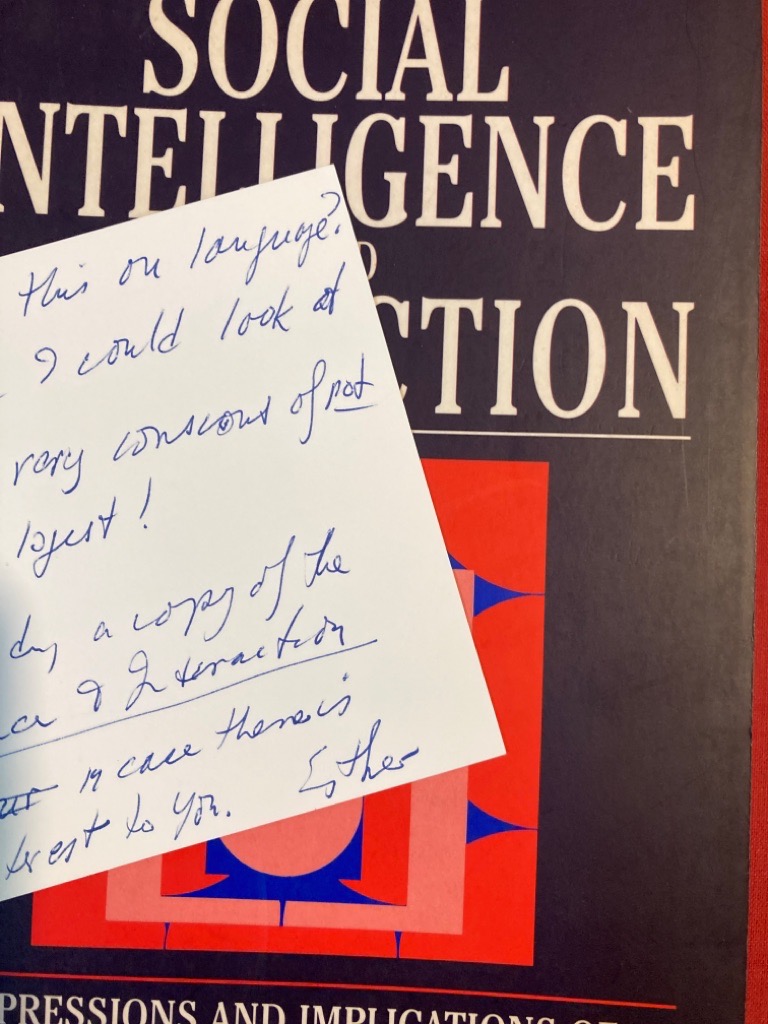 SOCIAL
NTELLIGENCE
D
CTION
this on language?
I could look at
very conscious of not
logist!
a copy of the
ce & Interaction
in case there is
terest to you.
Esther
PRESSIONS AND IMPLICATIONS OF